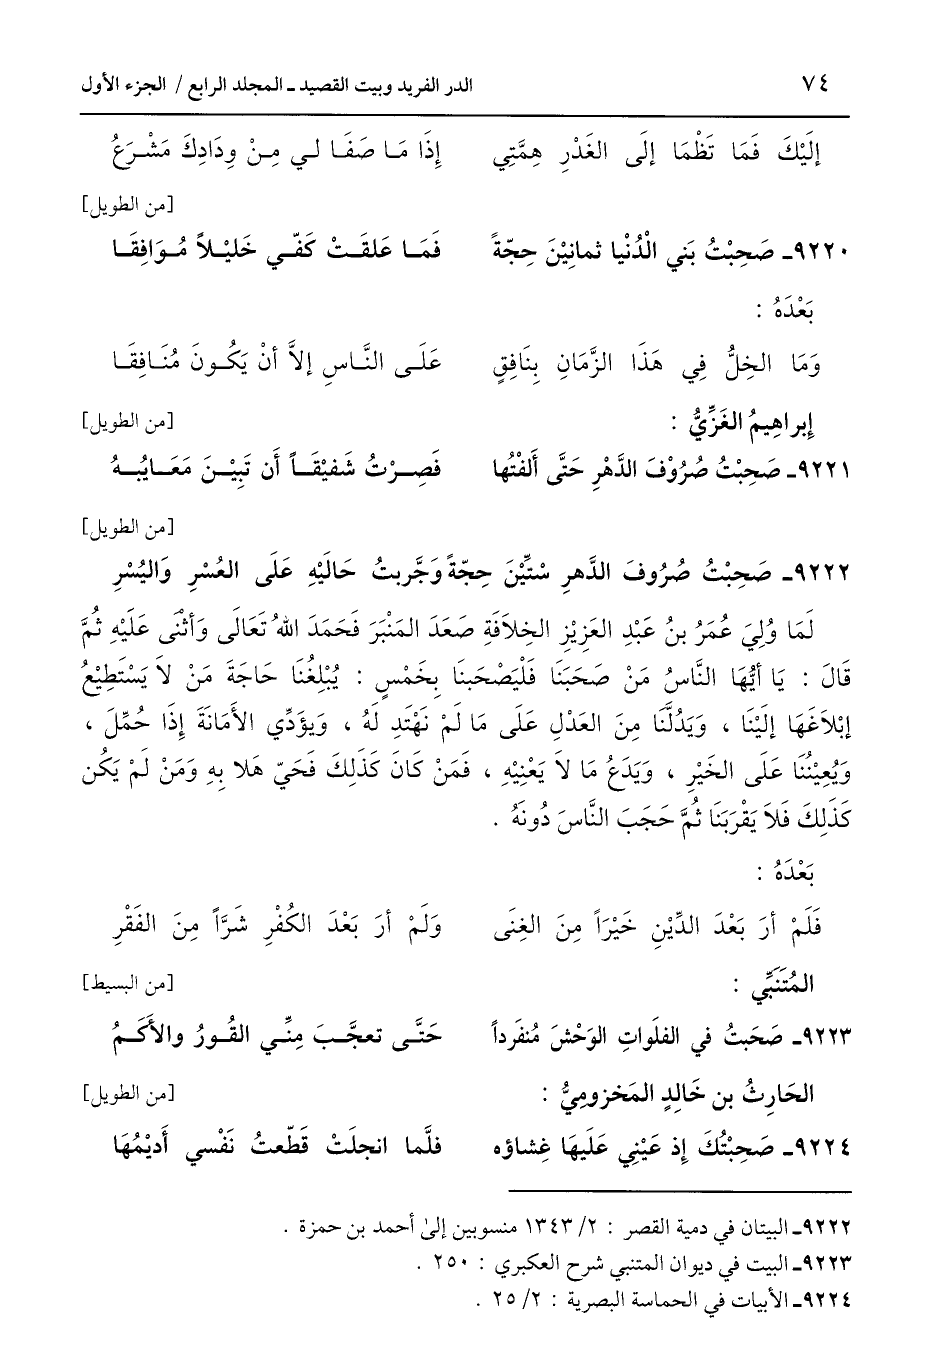 ٧٤ الدر الفريد وبيت القصيد ـ المجلد الرابع / الجزء الأول
إِلَيْكَ فَمَا تَظْمَا إِلَى الغَدْرِ هِمَّتِي إِذَا مَا صَفَا لي مِنْ وِدَادِكَ مَشْرَعُ
[من الطويل]
٩٢٢٠ـ صَحِبْتُ بَني الْدُنْيا ثمانِيْنَ حِجّةً فَمَا عَلقَتْ كَفّي خَليْلاً مُوَافِقَا
بَعْدَهُ :
وَمَا الخِلُّ فِي هَذَا الزَّمَانِ بِنَافِقٍ عَلَى النَّاسِ إلاَّ أنْ يَكُونَ مُنَافِقَا
إبراهِيمُ الغَزِّيُّ : [من الطويل]
٩٢٢١ـ صَحِبْتُ صُرُوْفَ الدَّهْرِ حَتَّى أَلَفْتُها فَصِرْتُ شَفيْقَاً أَن تَبِيْنَ مَعَايبُهُ
[من الطويل]
٩٢٢٢ـ صَحِبْتُ صُرُوفَ الدَّهرِ سْتِّيْنَ حِجّةً وَجَّربتُ حَاليْهِ عَلَى العُسْرِ وَاليُسْرِ
لَمَا وُلِيَ عُمَرُ بنُ عَبْدِ العَزِيْزِ الخِلاَفَةِ صَعَدَ المَنْبَرَ فَحَمَدَ اللهُ تَعَالَى وَأثْنَى عَلَيْهِ ثُمَّ
قَالَ : يَا أَيُّهَا النَّاسُ مَنْ صَحَبَنَا فَلْيَصْحَبنَا بِخَمْسٍ : يُبْلِغُنَا حَاجَةَ مَنْ لاَ يَسْتَطِيْعُ
إبْلاَغَهَا إلَيْنَا ، وَيَدُلُّنَا مِنَ العَدْلِ عَلَى مَا لَمْ نَهْتَدِ لَهُ ، وَيؤَدِّي الأَمَانَةَ إذَا حُمِّلَ ،
وَيُعِيْنُنَا عَلَى الخَيْرِ ، وَيَدَعُ مَا لاَ يَعْنِيْهِ ، فَمَنْ كَانَ كَذَلِكَ فَحَيّ هَلا بِهِ وَمَنْ لَمْ يَكُن
كَذَلِكَ فَلاَ يَقْرَبَنَا ثُمَّ حَجَبَ النَّاسَ دُونَهُ .
بَعْدَهُ :
فَلَمْ أرَ بَعْدَ الدِّيْنِ خَيْرَاً مِنَ الغِنَى وَلَمْ أرَ بَعْدَ الكُفْرِ شَرَّاً مِنَ الفَقْرِ
المُتَنَبِّي : [من البسيط]
٩٢٢٣ـ صَحَبتُ في الفلَواتِ الوَحْشَ مُنفَرداً حَتَّى تعجَّبَ مِنِّي القُورُ والأَكَمُ
الحَارِثُ بن خَالِدٍ المَخزوميُّ : [من الطويل]
٩٢٢٤ـ صَحِبْتُكَ إذ عَيْنِي عَلَيهَا غِشاؤه فلَّما انجلَتْ قَطّعتُ نَفْسي أَديْمُهَا
٩٢٢٢ـ البيتان في دمية القصر : ٢/ ١٣٤٣ منسوبين إلىٰ أحمد بن حمزة .
٩٢٢٣ـ البيت في ديوان المتنبي شرح العكبري : ٢٥٠ .
٩٢٢٤ـ الأبيات في الحماسة البصرية : ٢/ ٢٥ .